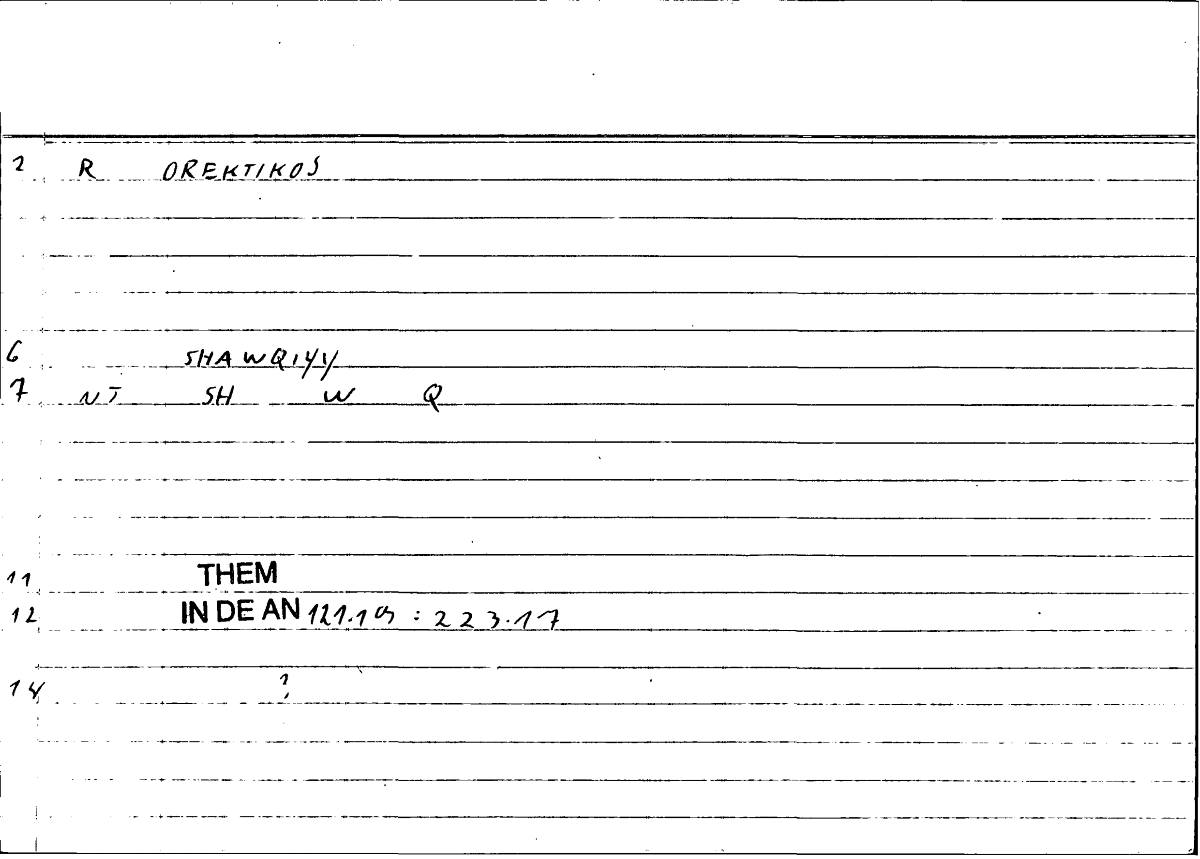 2 R OREKTIKOS
6 SHAWQIYY
7 NT SH W Q
11 THEM
12 IN DE AN 121.19 : 223.17
14 ?